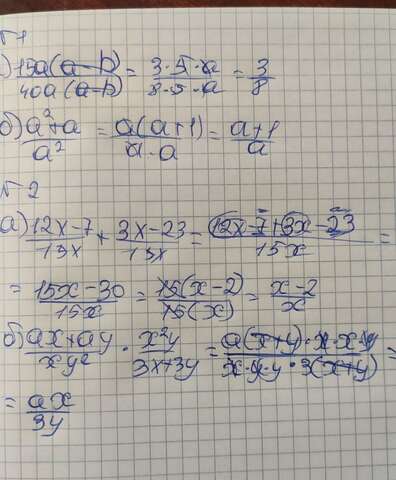 №1
а) 15a(a-b)/40a(a-b) = 3·5·a/8·5·a = 3/8
б) a²+a/a² = a(a+1)/a·a = a+1/a
№2
а) 12x-7/15x + 3x-23/15x = 12x-7+3x-23/15x =
= 15x-30/15x = 15(x-2)/15(x) = x-2/x
б) ax+ay/xy² · x²y/3x+3y = a(x+y)·x·x·y/x·y·y·3(x+y) =
= ax/3y